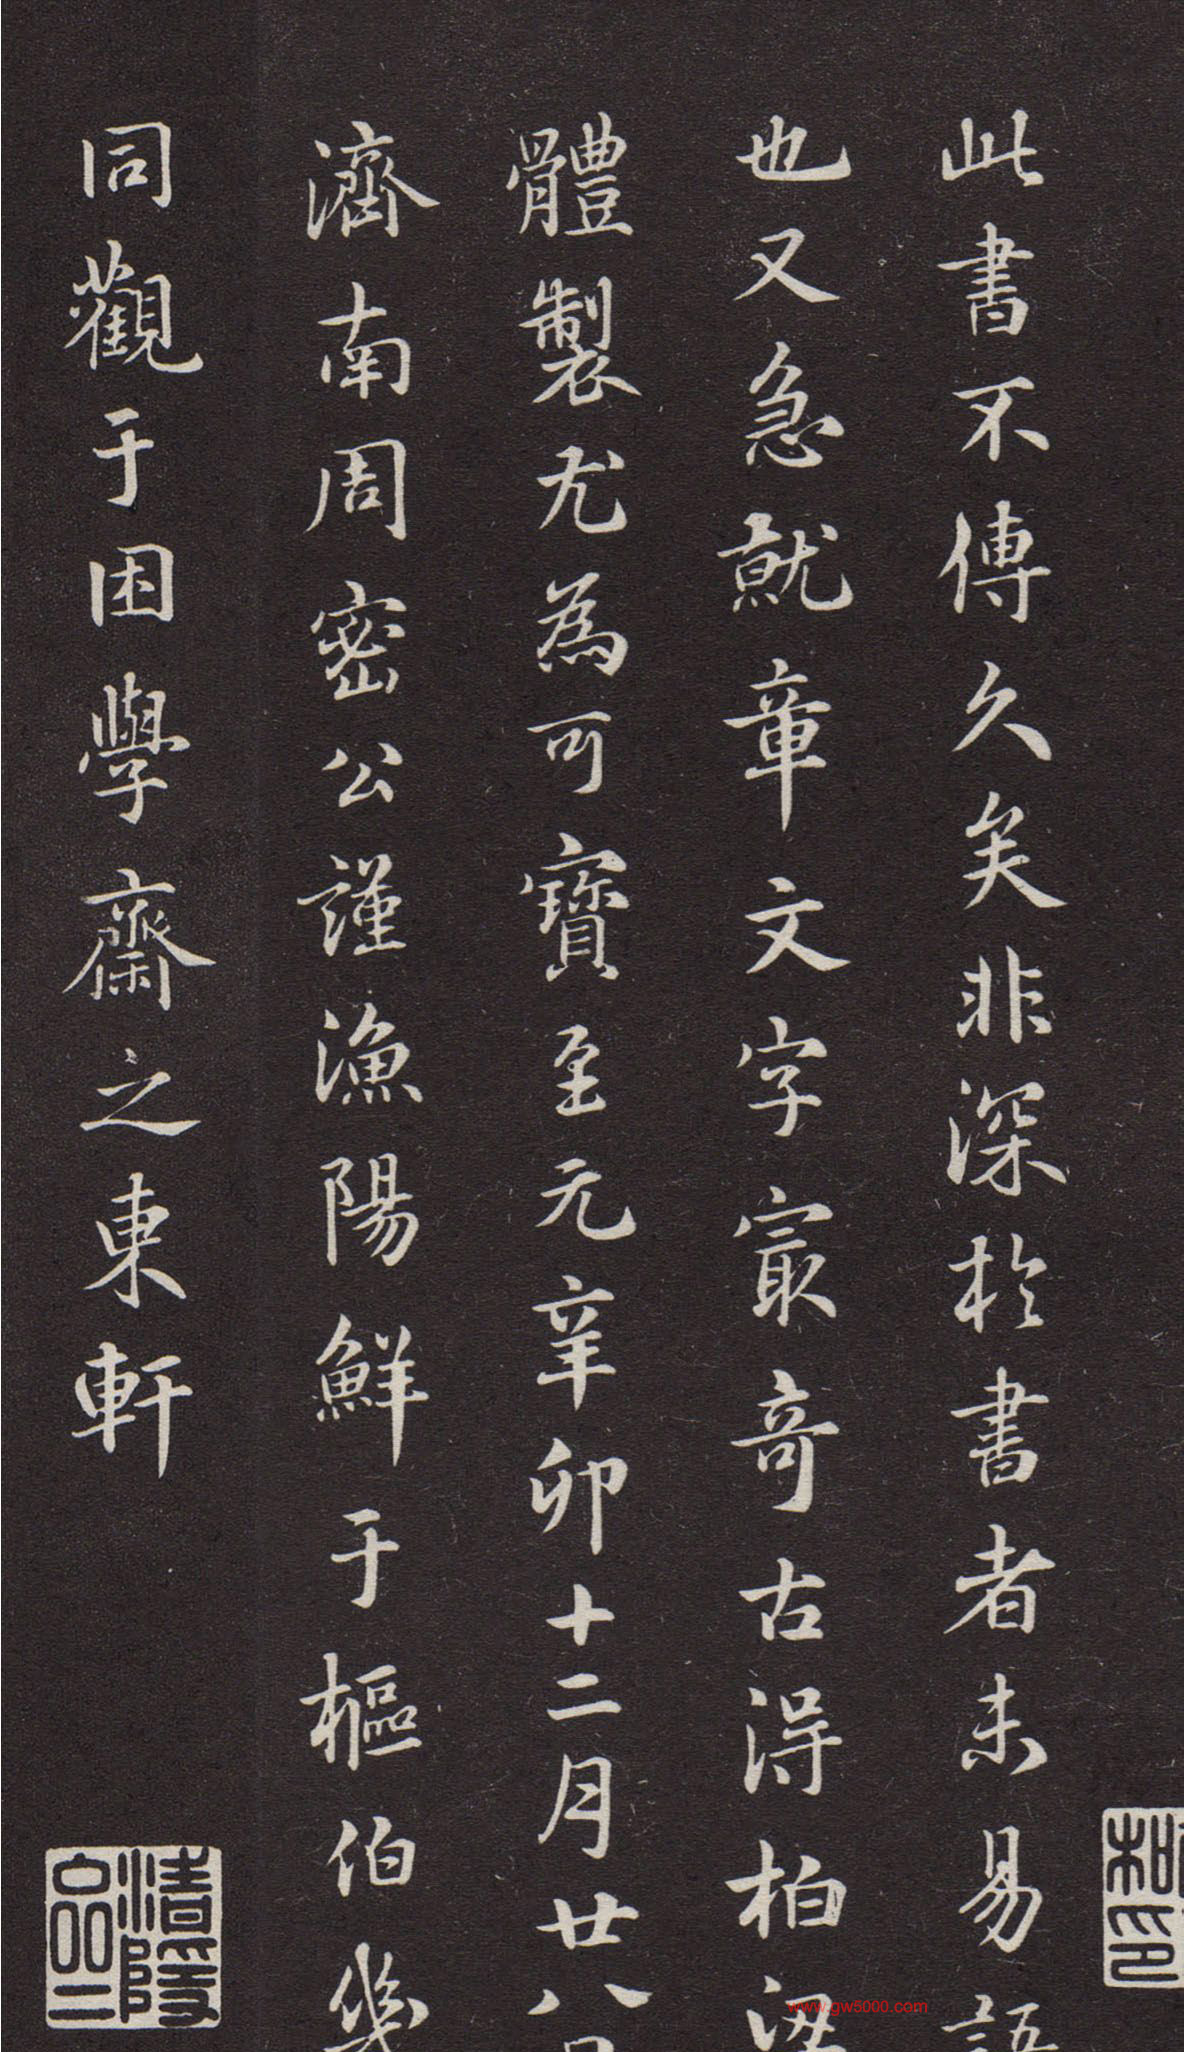 此書不傳久矣非深於書者未易語
也又急就章文字冣奇古得柏梁
體製尤為可寶至元辛卯十二月廿八日
濟南周密公謹漁陽鮮于樞伯幾
同觀于困學齋之東軒
www.gw5000.com